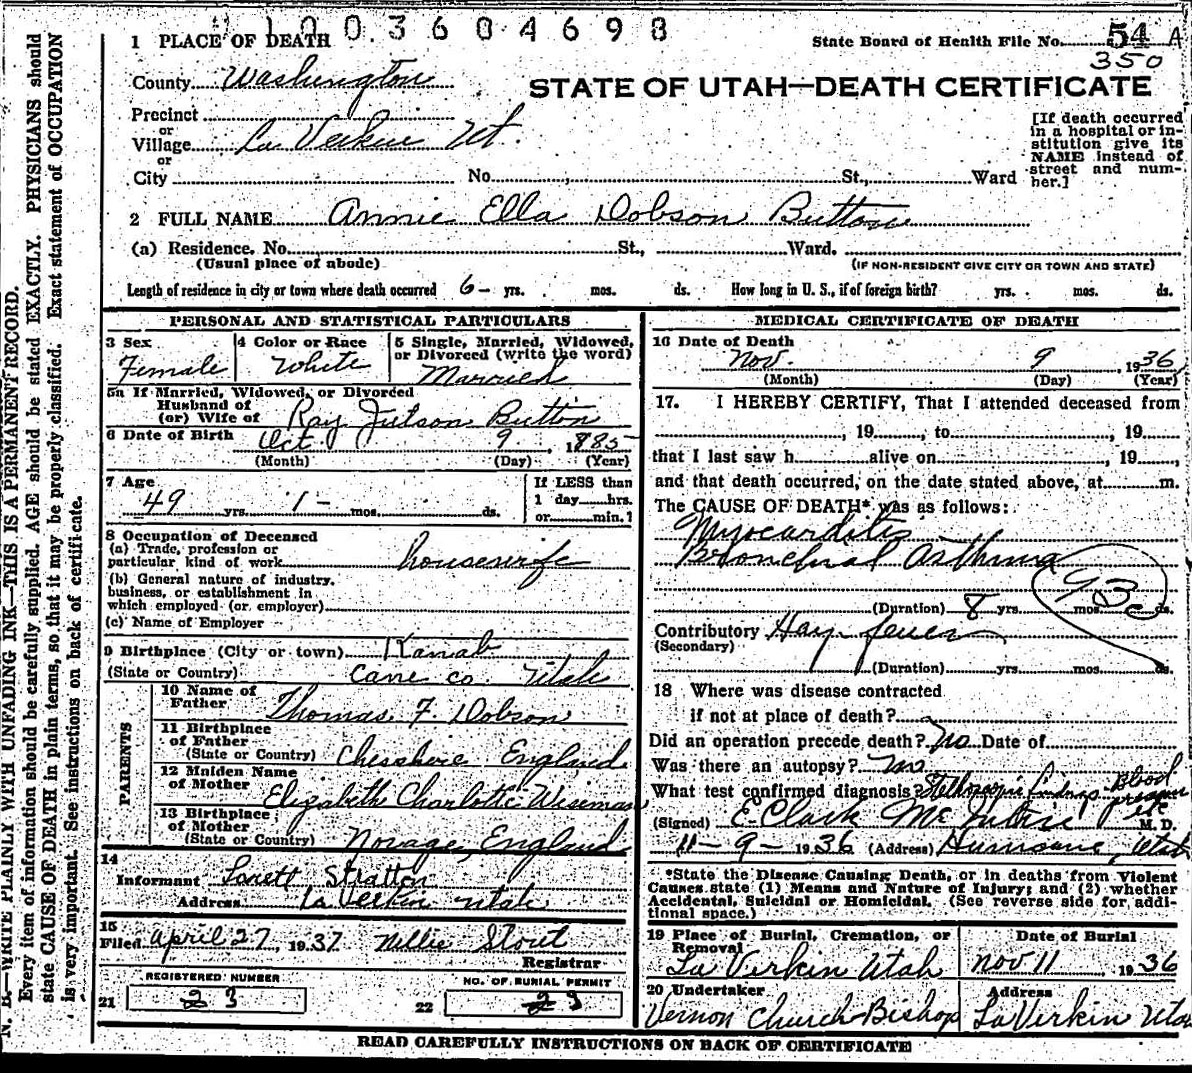 1003604698
1 PLACE OF DEATH
State Board of Health File No. 54 A
350
County Washington
STATE OF UTAH—DEATH CERTIFICATE
Precinct
or
Village La Verkin Ut.
or
City No. St., Ward
[If death occurred
in a hospital or in-
stitution give its
NAME instead of
street and num-
ber.]
2 FULL NAME Annie Ella Dobson Button
(a) Residence. No. St., Ward.
(Usual place of abode) (IF NON-RESIDENT GIVE CITY OR TOWN AND STATE)
Length of residence in city or town where death occurred 6- yrs. mos. ds. How long in U. S., if of foreign birth? yrs. mos. ds.
PERSONAL AND STATISTICAL PARTICULARS
3 Sex Female
4 Color or Race White
5 Single, Married, Widowed,
or Divorced (write the word)
Married
5a If Married, Widowed, or Divorced
Husband of
(or) Wife of Ray Jutson Button
6 Date of Birth Oct 9, 1885
(Month) (Day) (Year)
7 Age
49 yrs. 1- mos. ds.
If LESS than
1 day hrs.
or min.?
8 Occupation of Deceased
(a) Trade, profession or
particular kind of work housewife
(b) General nature of industry,
business, or establishment in
which employed (or employer)
(c) Name of Employer
9 Birthplace (City or town) Kanab
(State or Country) Cane co Utah
PARENTS
10 Name of
Father Thomas F Dobson
11 Birthplace
of Father
(State or Country) Chesshire England
12 Maiden Name
of Mother Elizabeth Charlotte Wiseman
13 Birthplace
of Mother
(State or Country) England
14
Informant Stratton
Address La Verkin Utah
15
Filed April 27, 1937 Nellie Stout
Registrar
REGISTERED NUMBER
21 23
NO. OF BURIAL PERMIT
22 23
MEDICAL CERTIFICATE OF DEATH
16 Date of Death
Nov. 9, 1936
(Month) (Day) (Year)
17. I HEREBY CERTIFY, That I attended deceased from
, 19 , to , 19
that I last saw h alive on , 19 ,
and that death occurred, on the date stated above, at m.
The CAUSE OF DEATH* was as follows:
Myocarditis
Bronchial Asthma
93c
(Duration) 8 yrs. mos. ds.
Contributory Hay fever
(Secondary)
(Duration) yrs. mos. ds.
18 Where was disease contracted
if not at place of death?
Did an operation precede death? no Date of
Was there an autopsy? no
What test confirmed diagnosis? Stethoscopic findings Blood pressure etc
(Signed) E. Clark McIntire M. D.
11-9-1936 (Address) Hurricane, Utah
*State the Disease Causing Death, or in deaths from Violent
Causes state (1) Means and Nature of Injury; and (2) whether
Accidental, Suicidal or Homicidal. (See reverse side for addi-
tional space.)
19 Place of Burial, Cremation, or
Removal
La Virkin Utah
Date of Burial
Nov 11, 1936
20 Undertaker
Vernon Church Bishop
Address
La Virkin Utah
READ CAREFULLY INSTRUCTIONS ON BACK OF CERTIFICATE
N. B.—WRITE PLAINLY WITH UNFADING INK—THIS IS A PERMANENT RECORD.
Every item of information should be carefully supplied. AGE should be stated EXACTLY. PHYSICIANS should
state CAUSE OF DEATH in plain terms, so that it may be properly classified. Exact statement of OCCUPATION
is very important. See instructions on back of certificate.